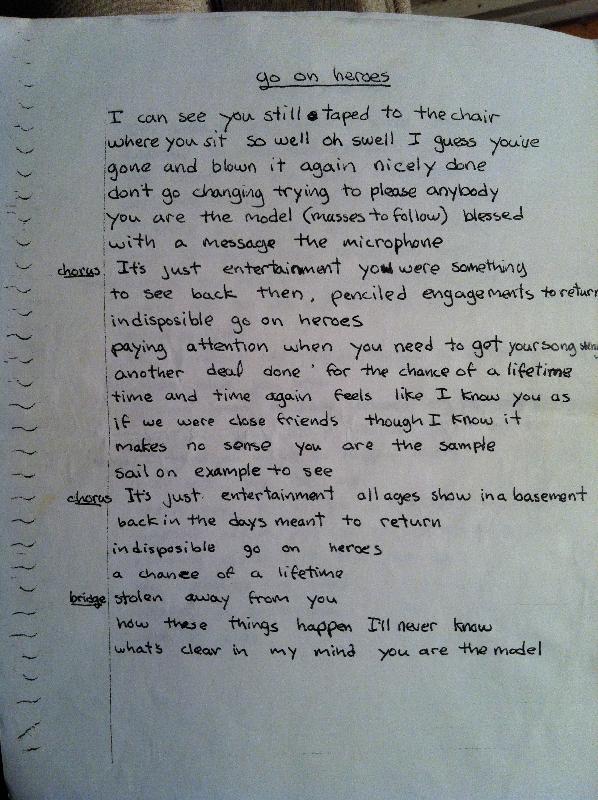 go on heroes
I can see you still taped to the chair
where you sit so well oh swell I guess you've
gone and blown it again nicely done
don't go changing trying to please anybody
you are the model (masses to follow) blessed
with a message the microphone
chorus It's just entertainment you were something
to see back then, penciled engagements to return
indisposible go on heroes
paying attention when you need to get your song
another deal done for the chance of a lifetime
time and time again feels like I know you as
if we were close friends though I know it
makes no sense you are the sample
sail on example to see
chorus It's just entertainment all ages show in a basement
back in the days meant to return
indisposible go on heroes
a chance of a lifetime
bridge stolen away from you
how these things happen I'll never know
what's clear in my mind you are the model